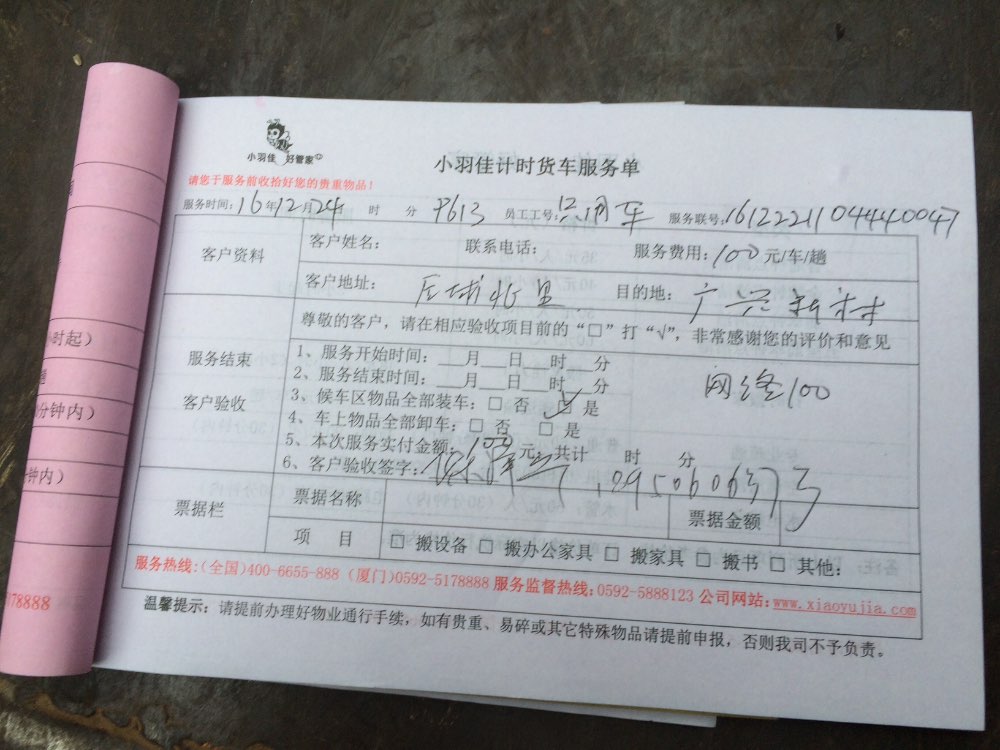 小羽佳 好管家
小羽佳计时货车服务单
请您于服务前收拾好您的贵重物品！
服务时间：16年12月24日 时 分 9613 员工工号： 服务联号：161222110444 0047
客户资料 客户姓名： 联系电话： 服务费用：100元/车/趟
客户地址： 后埔北里 目的地：广兴新村
尊敬的客户，请在相应验收项目前的“□”打“√”，非常感谢您的评价和意见
服务结束
客户验收
1、服务开始时间： 月 日 时 分
2、服务结束时间： 月 日 时 分
网络100
3、候车区物品全部装车：□ 否 □ 是
4、车上物品全部卸车：□ 否 □ 是
5、本次服务实付金额：100元；共计 时 分
6、客户验收签字：
票据栏 票据名称 票据金额
项 目 □ 搬设备 □ 搬办公家具 □ 搬家具 □ 搬书 □ 其他：
服务热线:(全国)400-6655-888 (厦门)0592-5178888 服务监督热线:0592-5888123 公司网站:www.xiaoyujia.com
温馨提示：请提前办理好物业通行手续，如有贵重、易碎或其它特殊物品请提前申报，否则我司不予负责。
时起）
分钟内）
钟内）
5178888